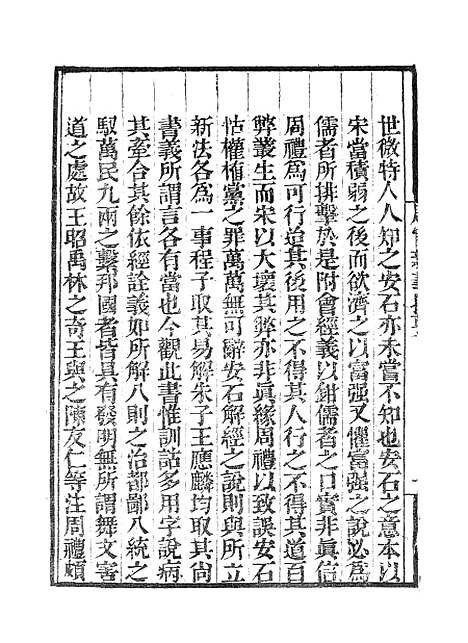 世微特人人知之安石亦未嘗不知也安石之意本以
宋當積弱之後而欲濟之以富强又懼富强之說必爲
儒者所排擊於是附會經義以鉗儒者之口實非眞信
周禮爲可行迨其後用之不得其人行之不得其道百
弊叢生而宋以大壞其弊亦非眞緣周禮以致誤安石
怙權植黨之罪萬萬無可辭安石解經之說則與所立
新法各爲一事程子取其易解朱子王應麟均取其尙
書義所謂言各有當也今觀此書惟訓詁多用字說病
其牽合其餘依經詮義如所解八則之治都鄙八統之
馭萬民九兩之繫邦國者皆具有發明無所謂舞文害
道之處故王昭禹林之奇王與之陳友仁等注周禮頗